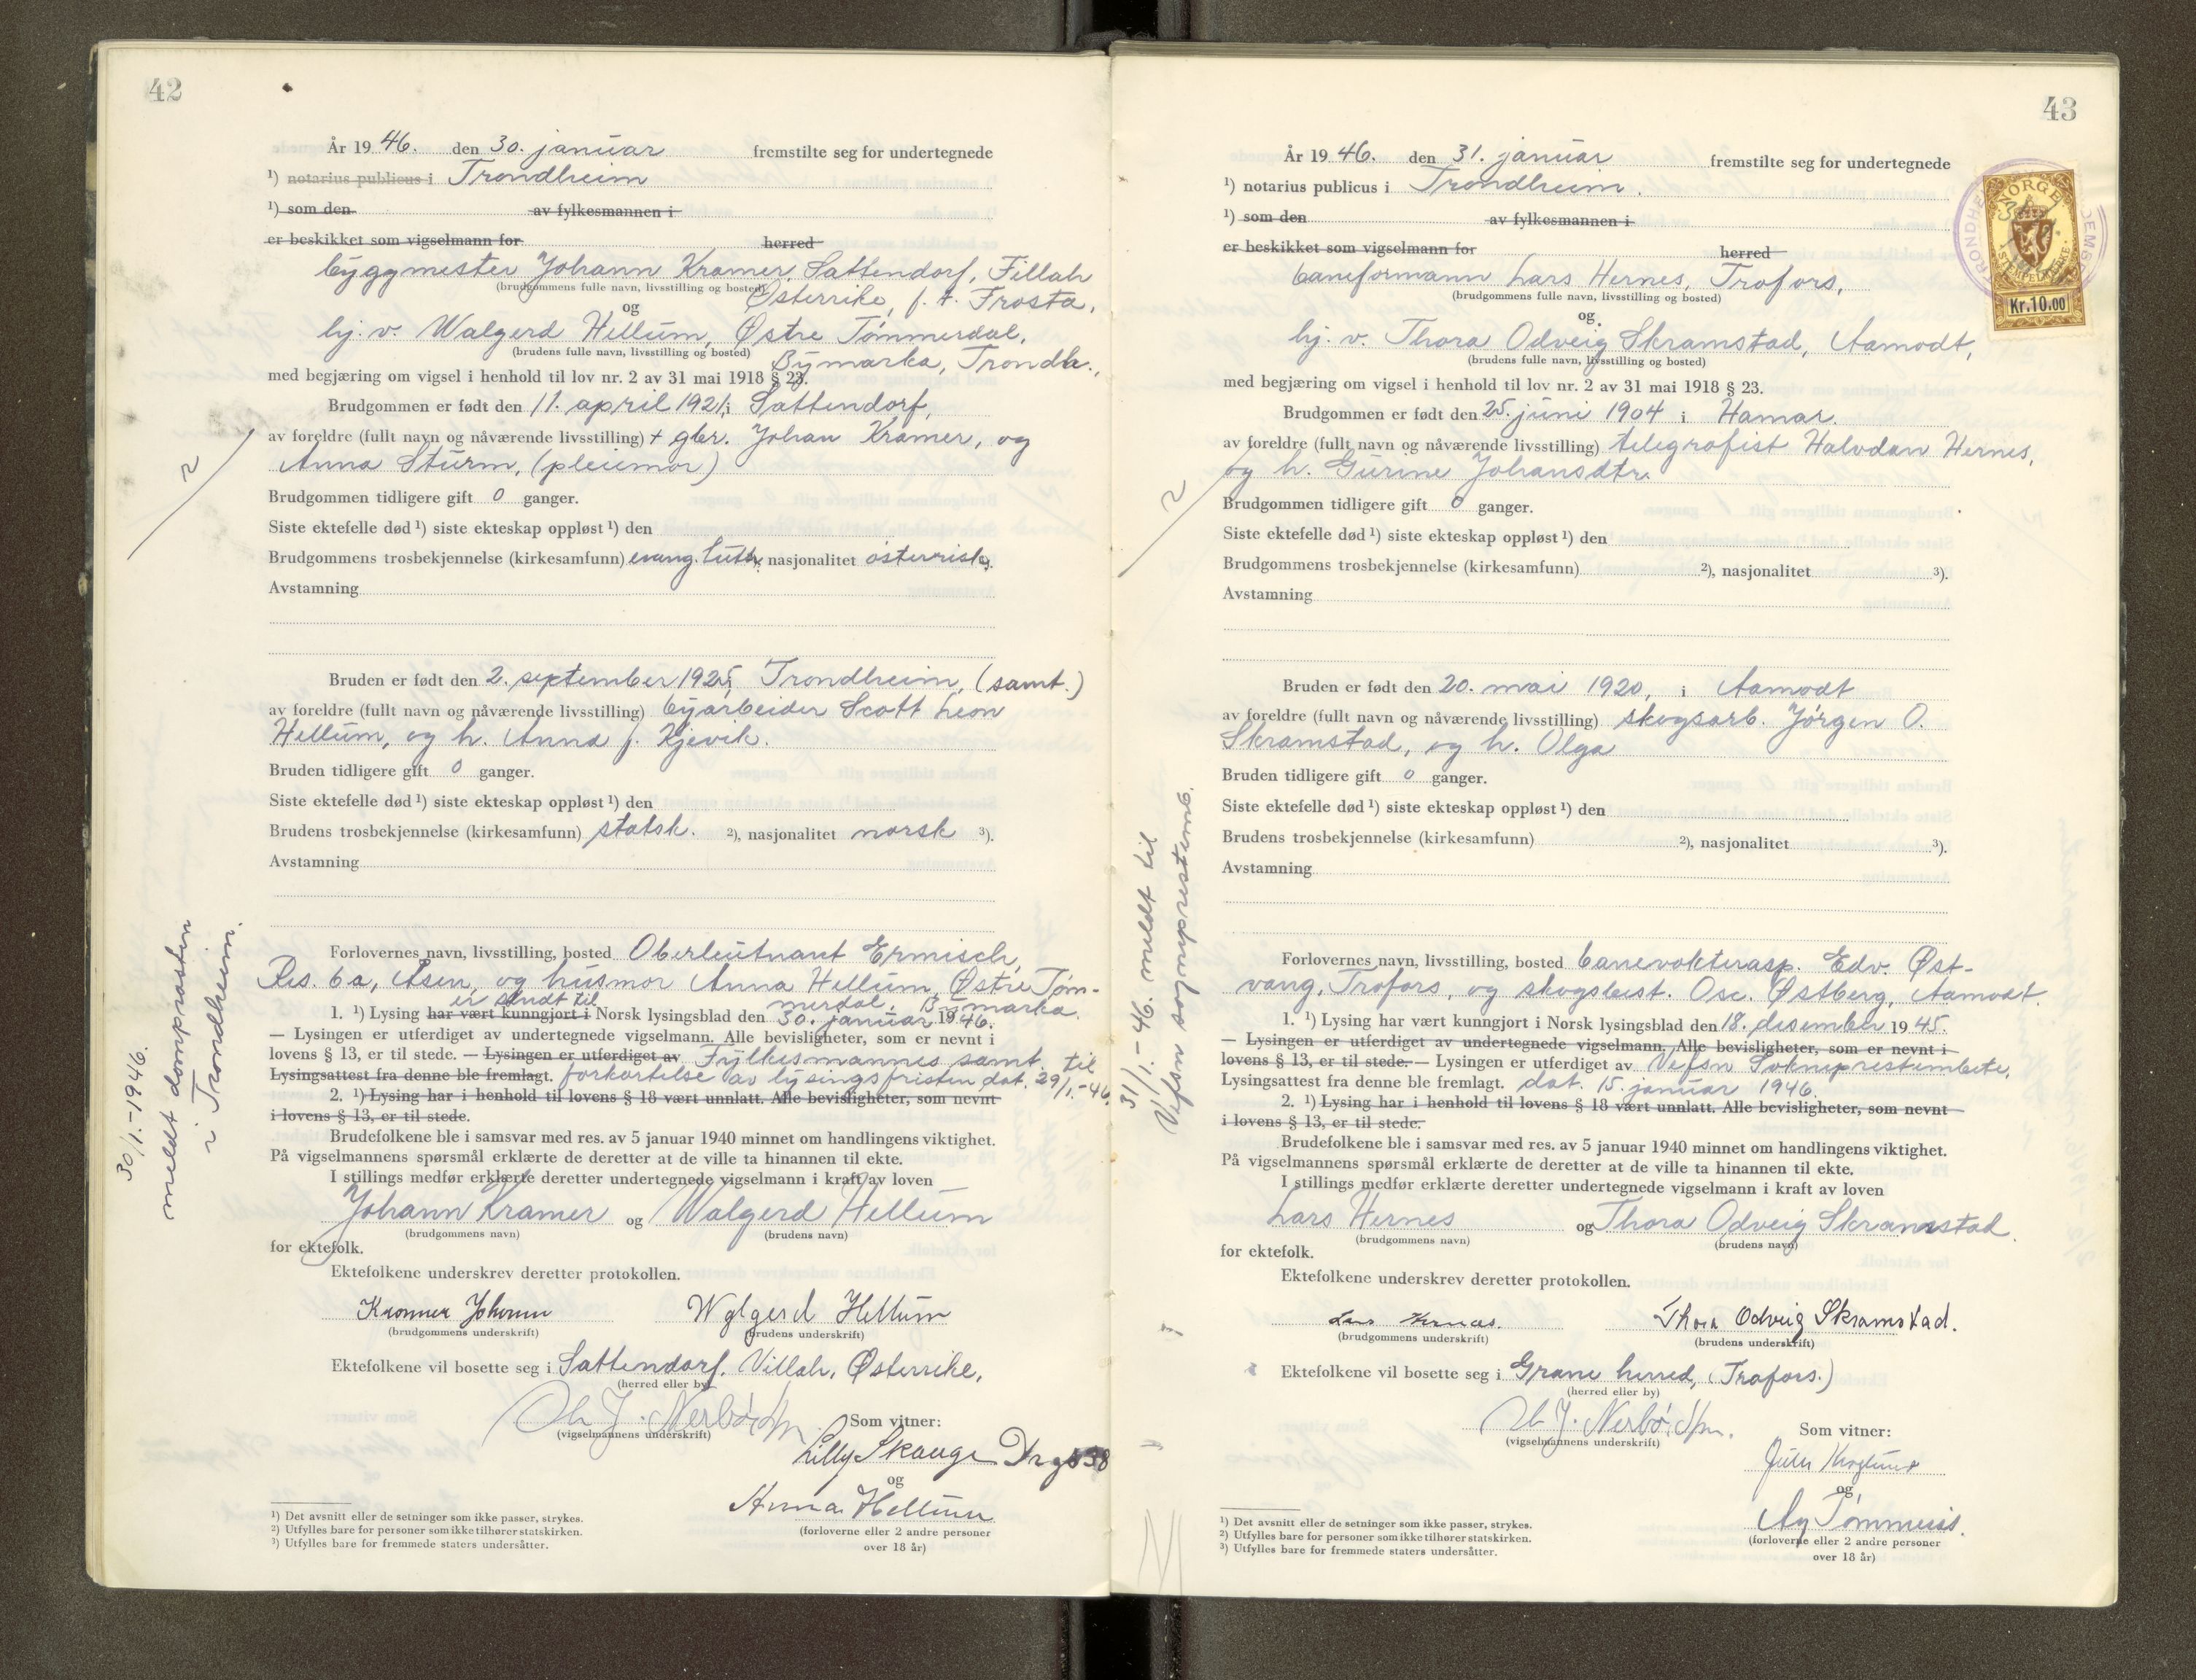 42
År 1946. den 30. januar fremstilte seg for undertegnede
¹) notarius publicus i Trondheim
¹) som den av fylkesmannen i
er beskikket som vigselmann for herred
byggmester Johann Kramer, Sattendorf, Fillah
(brudgommens fulle navn, livsstilling og bosted) Österrike, f. t. Frosta,
og
hj. v. Walgerd Hellum, Østre Tømmerdal,
(brudens fulle navn, livsstilling og bosted) Bymarka, Trondh.,
med begjæring om vigsel i henhold til lov nr. 2 av 31 mai 1918 § 23.
Brudgommen er født den 11. april 1921 i Sattendorf,
av foreldre (fullt navn og nåværende livsstilling) + gbr. Johan Kramer, og
Anna Sturm, (pleiemor)
Brudgommen tidligere gift 0 ganger.
Siste ektefelle død ¹) siste ekteskap oppløst ¹) den
Brudgommens trosbekjennelse (kirkesamfunn) evang. luth. nasjonalitet østerrisk ³).
Avstamning
Bruden er født den 2. september 1925 i Trondheim, (samt.)
av foreldre (fullt navn og nåværende livsstilling) byarbeider Scott Leon
Hellum, og h. Anna f. Kjevik.
Bruden tidligere gift 0 ganger.
Siste ektefelle død ¹) siste ekteskap oppløst ¹) den
Brudens trosbekjennelse (kirkesamfunn) statsk. ²), nasjonalitet norsk ³).
Avstamning
Forlovernes navn, livsstilling, bosted Oberleutnant Ermisch,
Res. 6a, Åsen, og husmor Anna Hellum, Østre Tøm-
er sendt til merdal, Bymarka.
1. ¹) Lysing har vært kunngjort i Norsk lysingsblad den 30. januar 1946.
— Lysingen er utferdiget av undertegnede vigselmann. Alle bevisligheter, som er nevnt i
lovens § 13, er til stede. — Lysingen er utferdiget av Fylkesmannes samt. til
Lysingsattest fra denne ble fremlagt. forkortelse av lysingsfristen dat. 29/1.-46.
2. ¹) Lysing har i henhold til lovens § 18 vært unnlatt. Alle bevisligheter, som nevnt
i lovens § 13, er til stede.
Brudefolkene ble i samsvar med res. av 5 januar 1940 minnet om handlingens viktighet.
På vigselmannens spørsmål erklærte de deretter at de ville ta hinannen til ekte.
I stillings medfør erklærte deretter undertegnede vigselmann i kraft av loven
Johann Kramer og Walgerd Hellum
(brudgommens navn) (brudens navn)
for ektefolk.
Ektefolkene underskrev deretter protokollen.
Kramer Johann Walgerd Hellum
(brudgommens underskrift) (brudens underskrift)
Ektefolkene vil bosette seg i Sattendorf. Villah, Østerrike,
(herred eller by)
Nerbø
(vigselmannens underskrift) Som vitner:
Lilly Skauge
og
Anna Hellum
(forloverne eller 2 andre personer
over 18 år)
¹) Det avsnitt eller de setninger som ikke passer, strykes.
²) Utfylles bare for personer som ikke tilhører statskirken.
³) Utfylles bare for fremmede staters undersåtter.
2
30/1.-1946.
meldt domprosten
i Trondheim.
43
År 1946. den 31. januar fremstilte seg for undertegnede
¹) notarius publicus i Trondheim.
¹) som den av fylkesmannen i
er beskikket som vigselmann for herred
baneformann Lars Hernes, Trofors,
(brudgommens fulle navn, livsstilling og bosted)
og
hj. v. Thora Odveig Skramstad, Aamodt,
(brudens fulle navn, livsstilling og bosted)
med begjæring om vigsel i henhold til lov nr. 2 av 31 mai 1918 § 23.
Brudgommen er født den 25. juni 1904 i Hamar.
av foreldre (fullt navn og nåværende livsstilling) telegrafist Halvdan Hernes,
og h. Gurine Johansdtr.
Brudgommen tidligere gift 0 ganger.
Siste ektefelle død ¹) siste ekteskap oppløst ¹) den
Brudgommens trosbekjennelse (kirkesamfunn) ²), nasjonalitet ³).
Avstamning
Bruden er født den 20. mai 1920, i Aamodt
av foreldre (fullt navn og nåværende livsstilling) skogsarb. Jørgen O.
Skramstad, og h. Olga
Bruden tidligere gift 0 ganger.
Siste ektefelle død ¹) siste ekteskap oppløst ¹) den
Brudens trosbekjennelse (kirkesamfunn) ²), nasjonalitet ³).
Avstamning
Forlovernes navn, livsstilling, bosted banevokterasp. Edv. Øst-
vang, Trofors, og skogsbest. Osc. Østberg, Aamodt
1. ¹) Lysing har vært kunngjort i Norsk lysingsblad den 18. desember 1945.
— Lysingen er utferdiget av undertegnede vigselmann. Alle bevisligheter, som er nevnt i
lovens § 13, er til stede. — Lysingen er utferdiget av Vefsn Sokneprestembete.
Lysingsattest fra denne ble fremlagt. dat. 15. januar 1946.
2. ¹) Lysing har i henhold til lovens § 18 vært unnlatt. Alle bevisligheter, som nevnt
i lovens § 13, er til stede.
Brudefolkene ble i samsvar med res. av 5 januar 1940 minnet om handlingens viktighet.
På vigselmannens spørsmål erklærte de deretter at de ville ta hinannen til ekte.
I stillings medfør erklærte deretter undertegnede vigselmann i kraft av loven
Lars Hernes og Thora Odveig Skramstad.
(brudgommens navn) (brudens navn)
for ektefolk.
Ektefolkene underskrev deretter protokollen.
Lars Hernes. Thora Odveig Skramstad.
(brudgommens underskrift) (brudens underskrift)
Ektefolkene vil bosette seg i Grane herred, (Trofors.)
(herred eller by)
Nerbø
(vigselmannens underskrift) Som vitner:
og
(forloverne eller 2 andre personer
over 18 år)
¹) Det avsnitt eller de setninger som ikke passer, strykes.
²) Utfylles bare for personer som ikke tilhører statskirken.
³) Utfylles bare for fremmede staters undersåtter.
2
31/1.-46. meldt til
Vefsn sogneprestemb.
NORGE
STEMPELMERKE
Kr.10.00